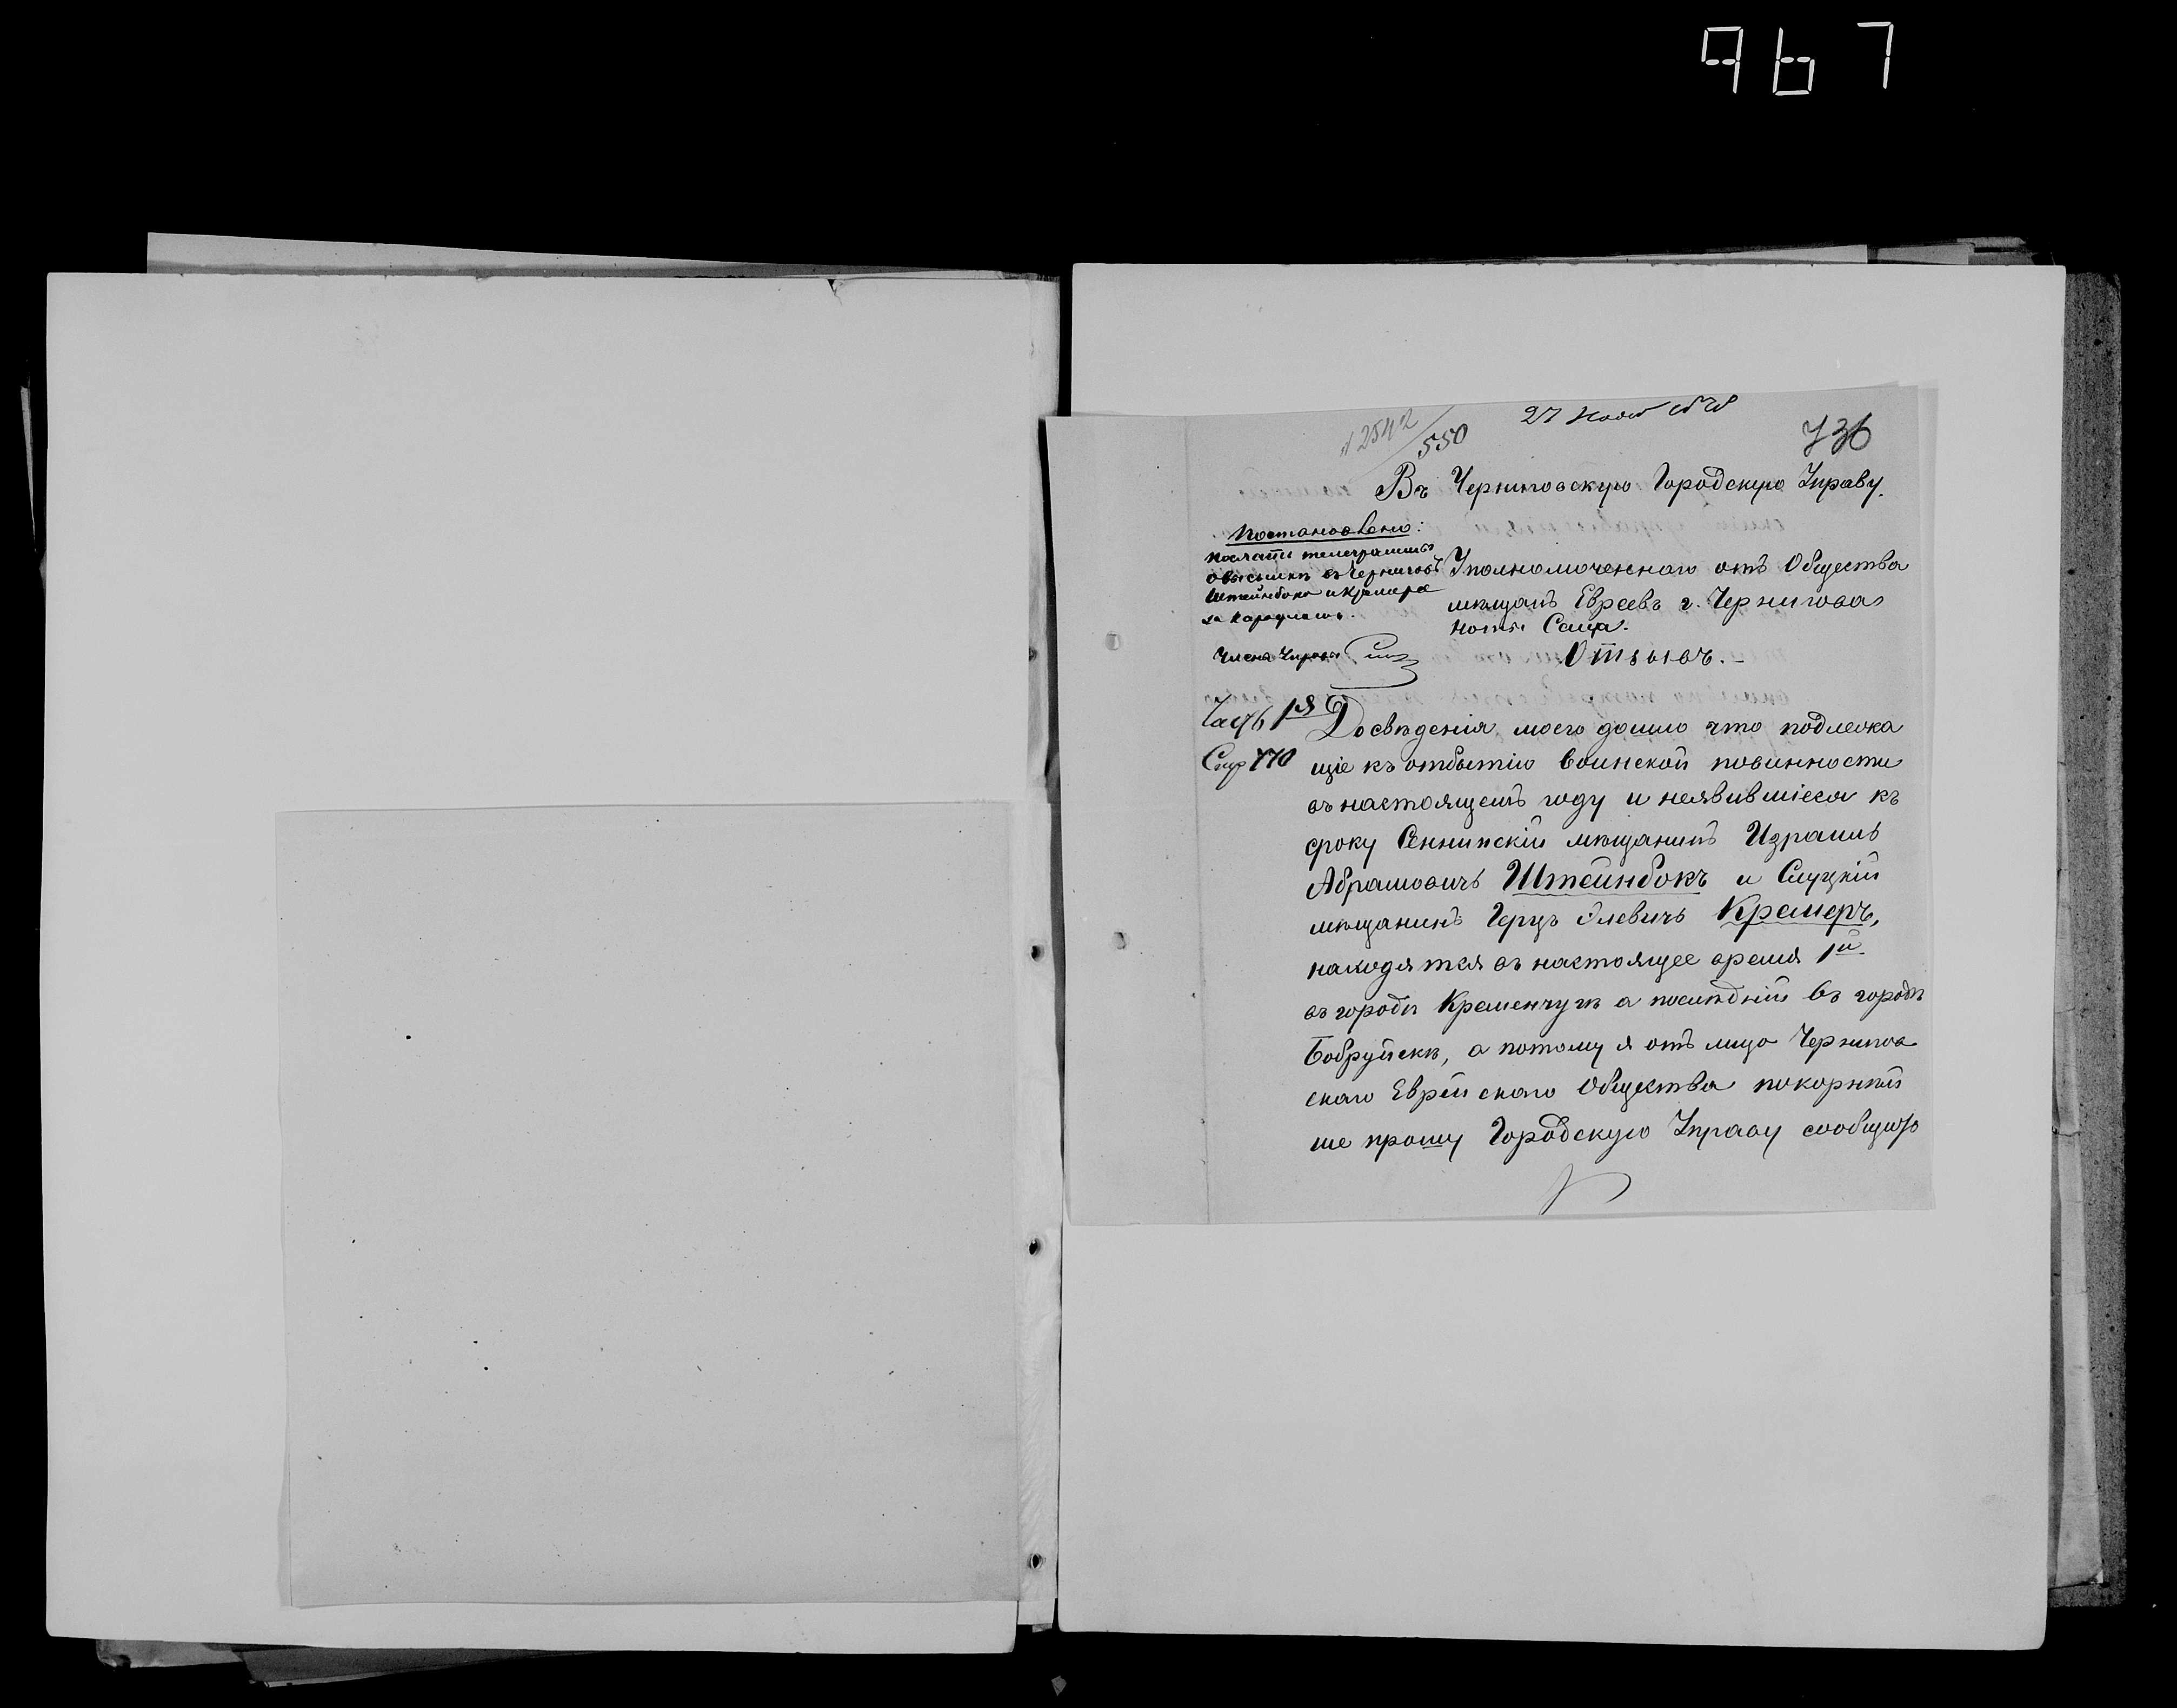 967
№ 2542
550
27 Нояб
736
Въ Черниговскую Городскую Управу.
Постановлено:
послать телеграммы
о высылкѣ въ Черниговъ
Штейнбока и Кремера
за карауломъ.
Членъ Управы
Уполномоченнаго отъ Общества
мѣщанъ Евреевъ г. Чернигова
Отзывъ.-
Часть 1я
Стр 770
До свѣденія моего дошло что подлежа
щіе къ отбытію воинской повинности
въ настоящемъ году и неявившіеся къ
сроку Сеннинскій мѣщанинъ Израиль
Абрамовичъ Штейнбокъ и Слуцкій
мѣщанинъ Герцъ Элевичъ Кремеръ,
находятся въ настоящее время 1й
въ городѣ Кременчугѣ а послѣдній въ городѣ
Бобруйскѣ, а потому я отъ лица Чернигов
скаго Еврейскаго Общества покорнѣй
ше прошу Городскую Управу сообщить